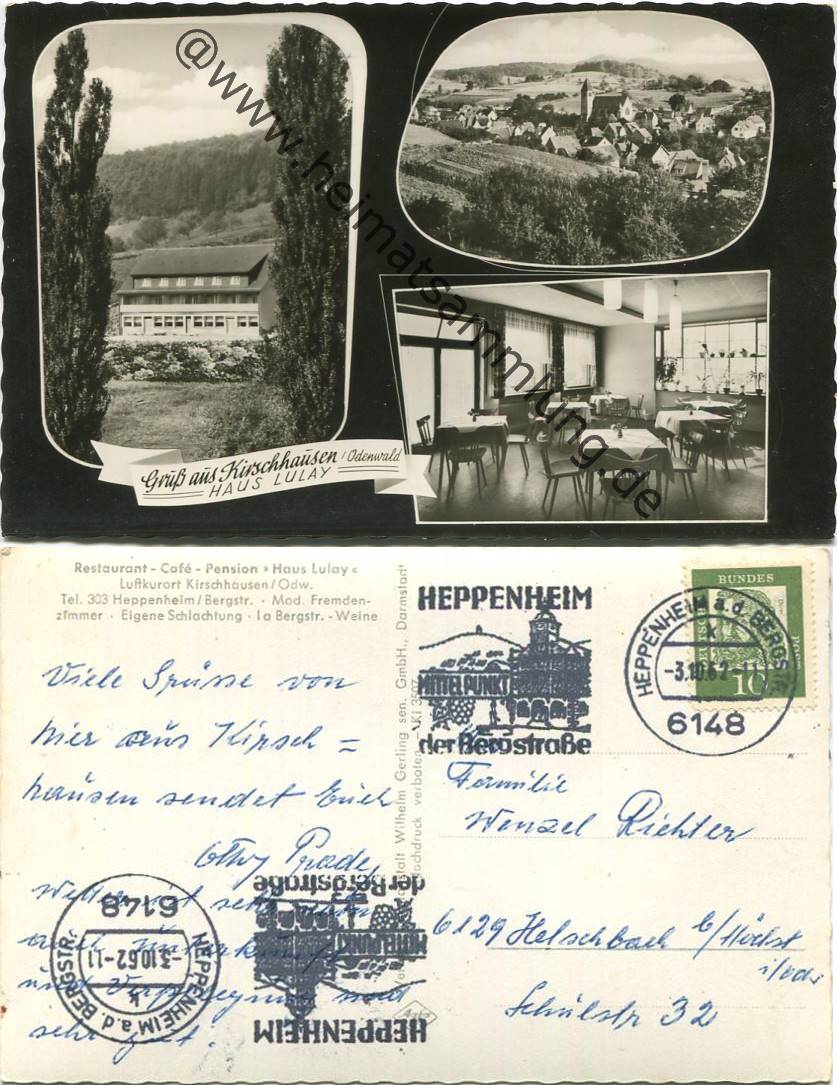 @www.heimatsammlung.de
Gruß aus Kirschhausen / Odenwald
HAUS LULAY
Restaurant - Café - Pension » Haus Lulay «
Luftkurort Kirschhausen / Odw.
Tel. 303 Heppenheim / Bergstr. · Mod. Fremden-
zimmer · Eigene Schlachtung · Ia Bergstr. - Weine
Viele Grüsse von
hier aus Kirsch =
hausen sendet Euch
Otty Prade,
Wetter ist sehr schön
auch Unterkunft
und Verpflegung sind
sehr gut.
Wilhelm Gerling sen. GmbH., Darmstadt
Nachdruck verboten
HEPPENHEIM
MITTELPUNKT
der Bergstraße
HEPPENHEIM a. d. BERGSTR.
k
-3.10.62-11
6148
BUNDES
POST
10
Familie
Wenzel Richter
6129 Helschbach b/Höchst
i/odw
Schulstr 32
HEPPENHEIM
MITTELPUNKT
der Bergstraße
HEPPENHEIM a. d. BERGSTR.
k
-3.10.62-11
6148